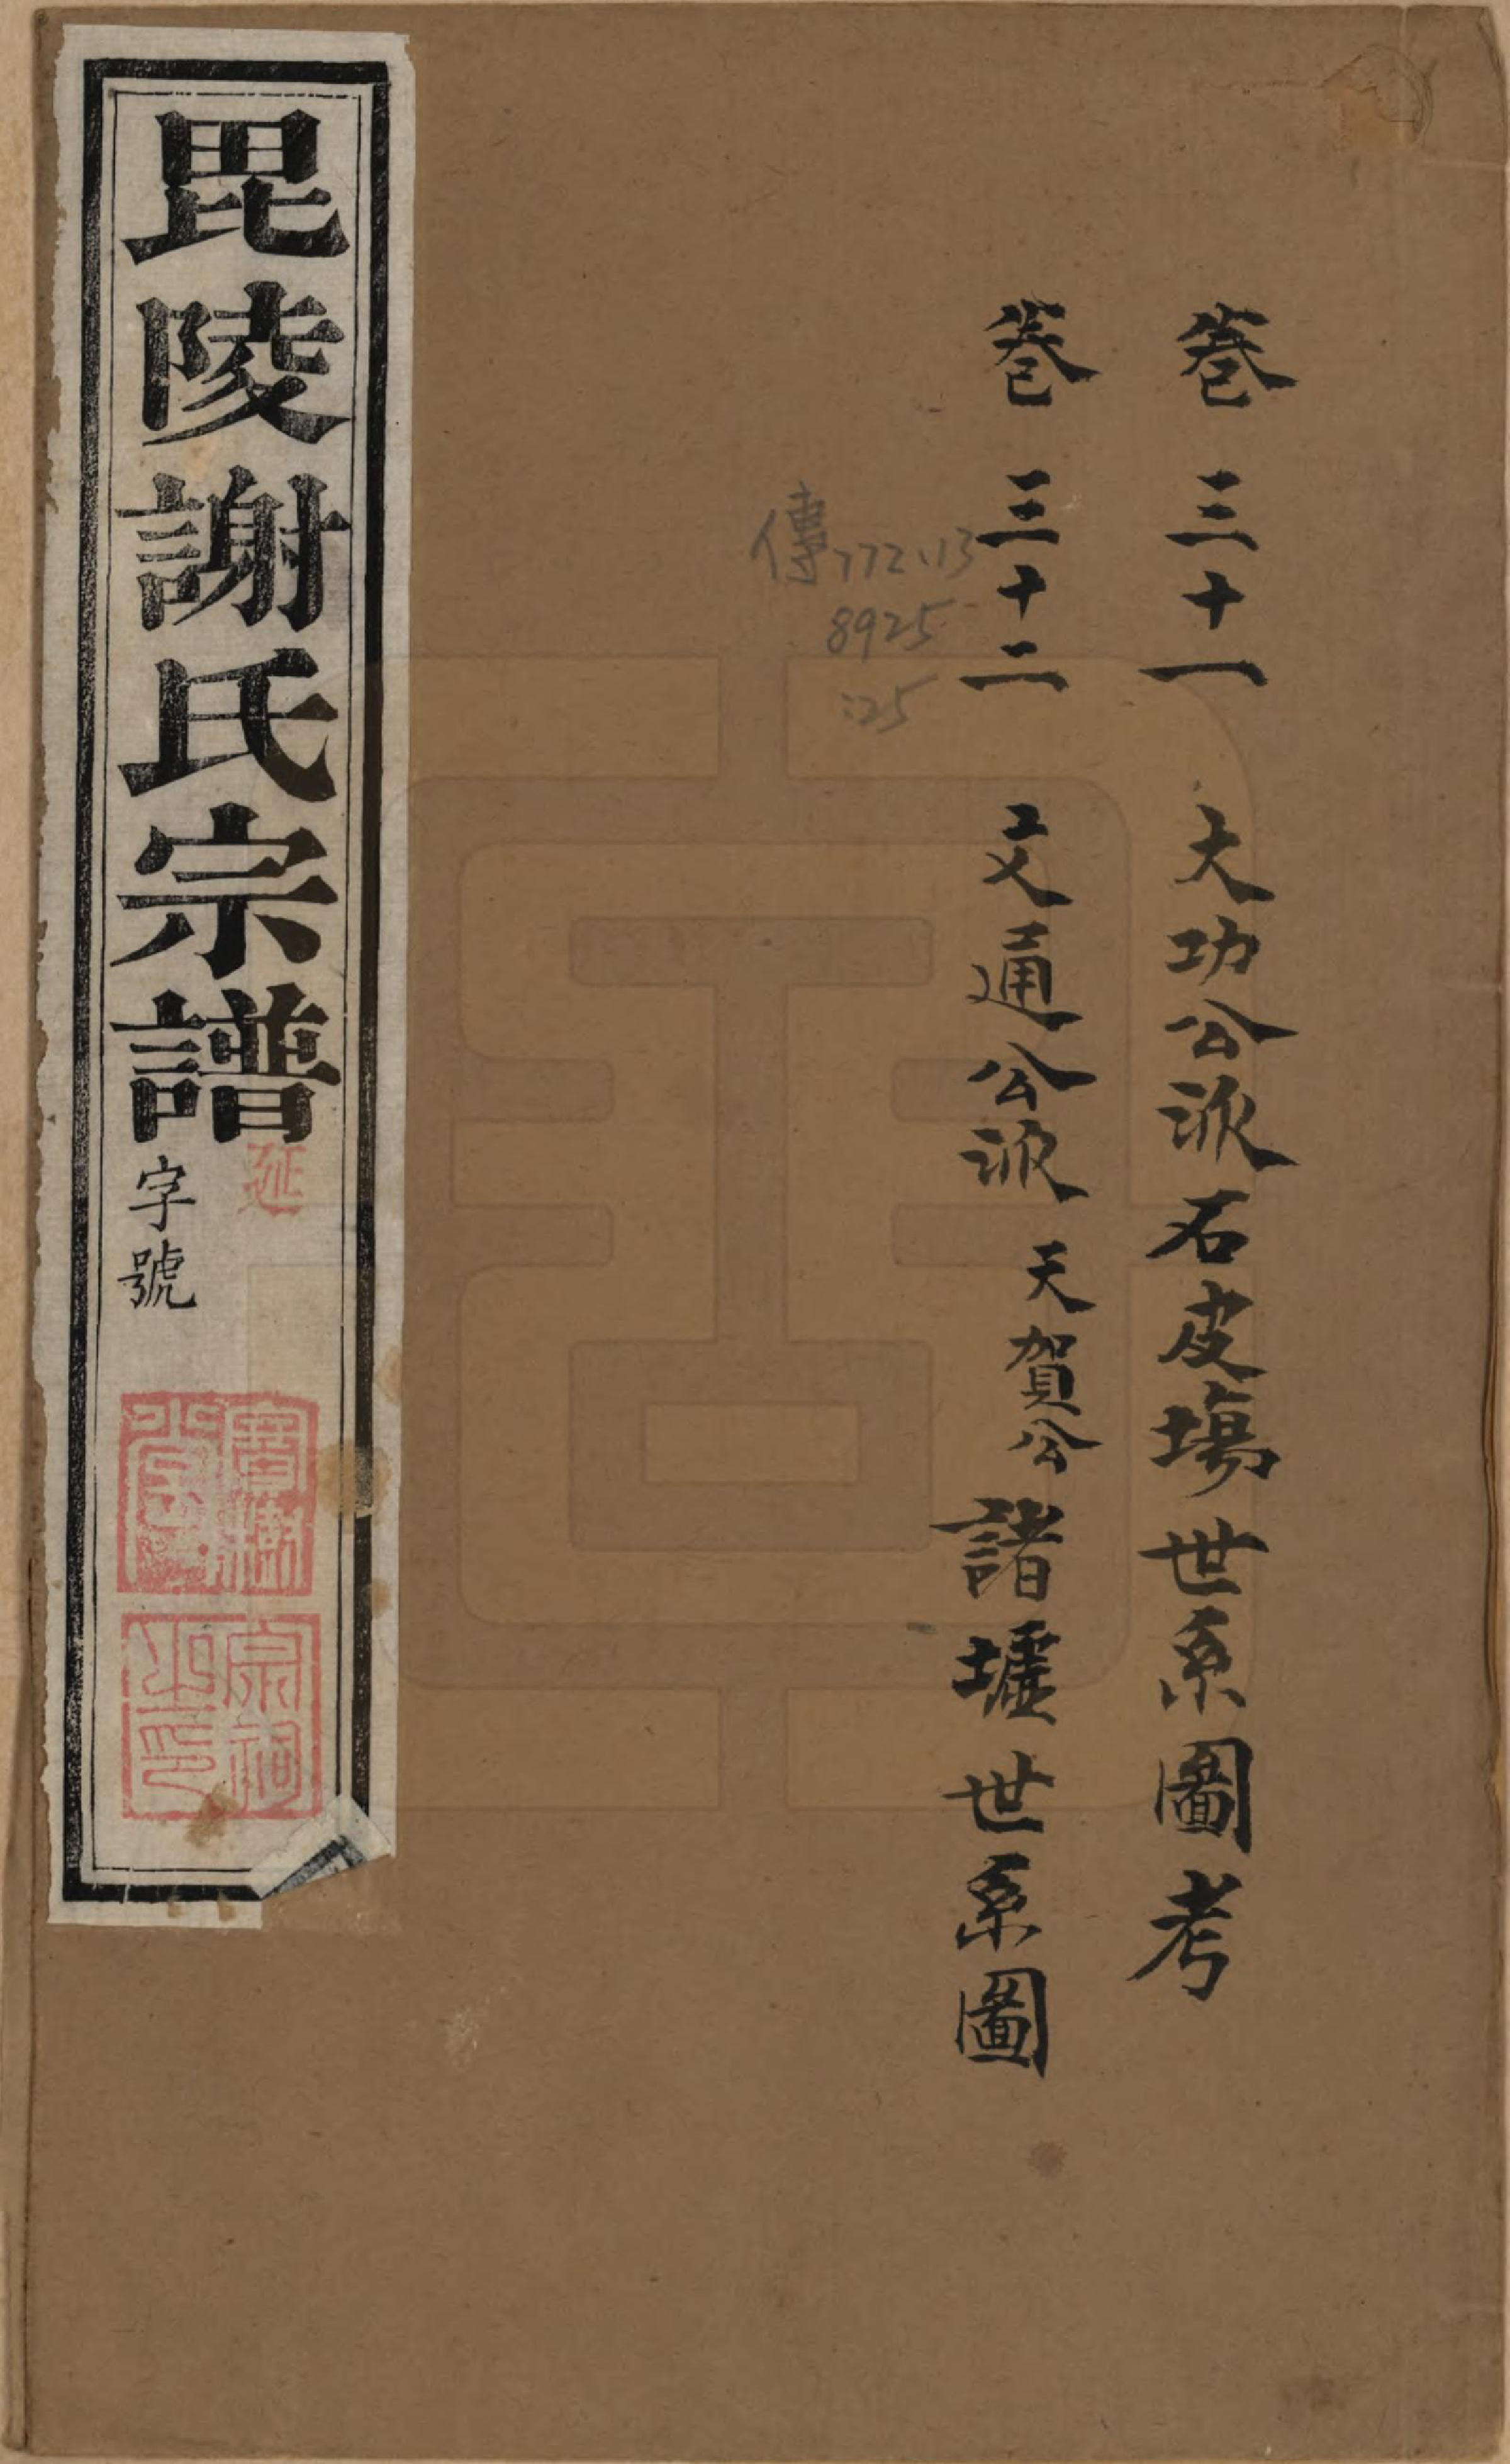 卷三十一 大功公派石皮場世系圖考
卷三十二 文通公派天賀公諸墟世系圖
傳772.13
8925
:25
毘陵謝氏宗譜
延
字號
寶樹堂
宗祠之印